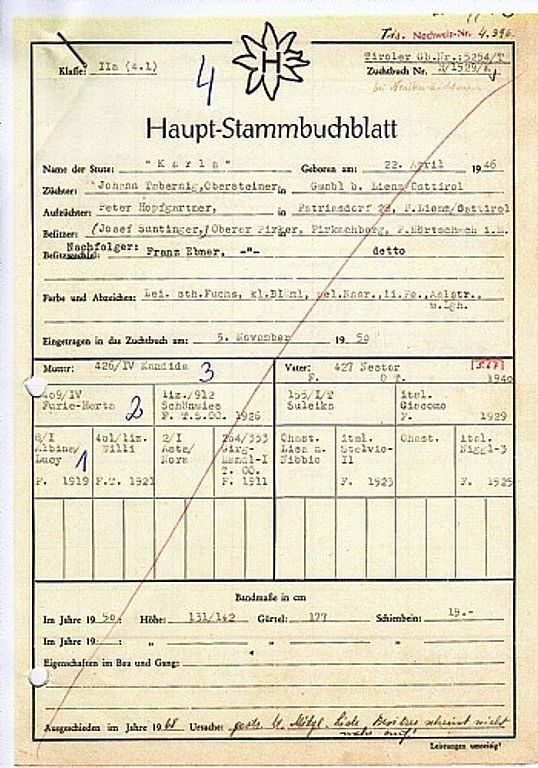 Tis. Nachweis-Nr. 4.396.
Tiroler Gb.Nr.: 5254/T
Klasse: IIa (4.1)
Zuchtbuch Nr.
4
H
Haupt-Stammbuchblatt
Name der Stute: "Karla" Geboren am: 22. April 1946
Züchter: Johann Tabernig, Obersteiner in Gwabl b. Lienz/Osttirol
Aufzüchter: Peter Hopfgartner, in Patriasdorf 28, P.Lienz/Osttirol
Besitzer: (Josef Suntinger,) Oberer Pirker, Pirkachberg, P.Nörtschach i.M.
Nachfolger:
Franz Ebner, -"- detto
Farbe und Abzeichen: Lei. sth.Fuchs, kl.Blüml,
Eingetragen in das Zuchtbuch am: 5. November 1950
Mutter: 426/IV Kandida 3 Vater: 427 Nestor
F. 1940
409/IV liz./912 155/I/T ital.
Furie-Herta 2 Schönwies Suleika Giacomo
F. T.S.00. 1926 F. 1929
8/I 401/liz. 2/I 264/353 Ohast. ital. Ohast. ital.
Albina/ Willi Asta/ Nibbio Stelvio- Niggl-3
Lucy 1 Nora II
T. 00.
F. 1919 F.T. 1921 F. 1911 F. 1923 F. 1925
Bandmaße in cm
Im Jahre 1950: Höhe: 131/142 Gürtel: 177 Schienbein: 19.-
Im Jahre 19 : " " "
Eigenschaften im Bau und Gang:
Ausgeschieden im Jahre 1968 Ursache: Besitzer scheint nicht
mehr auf!
Leistungen umseitig!